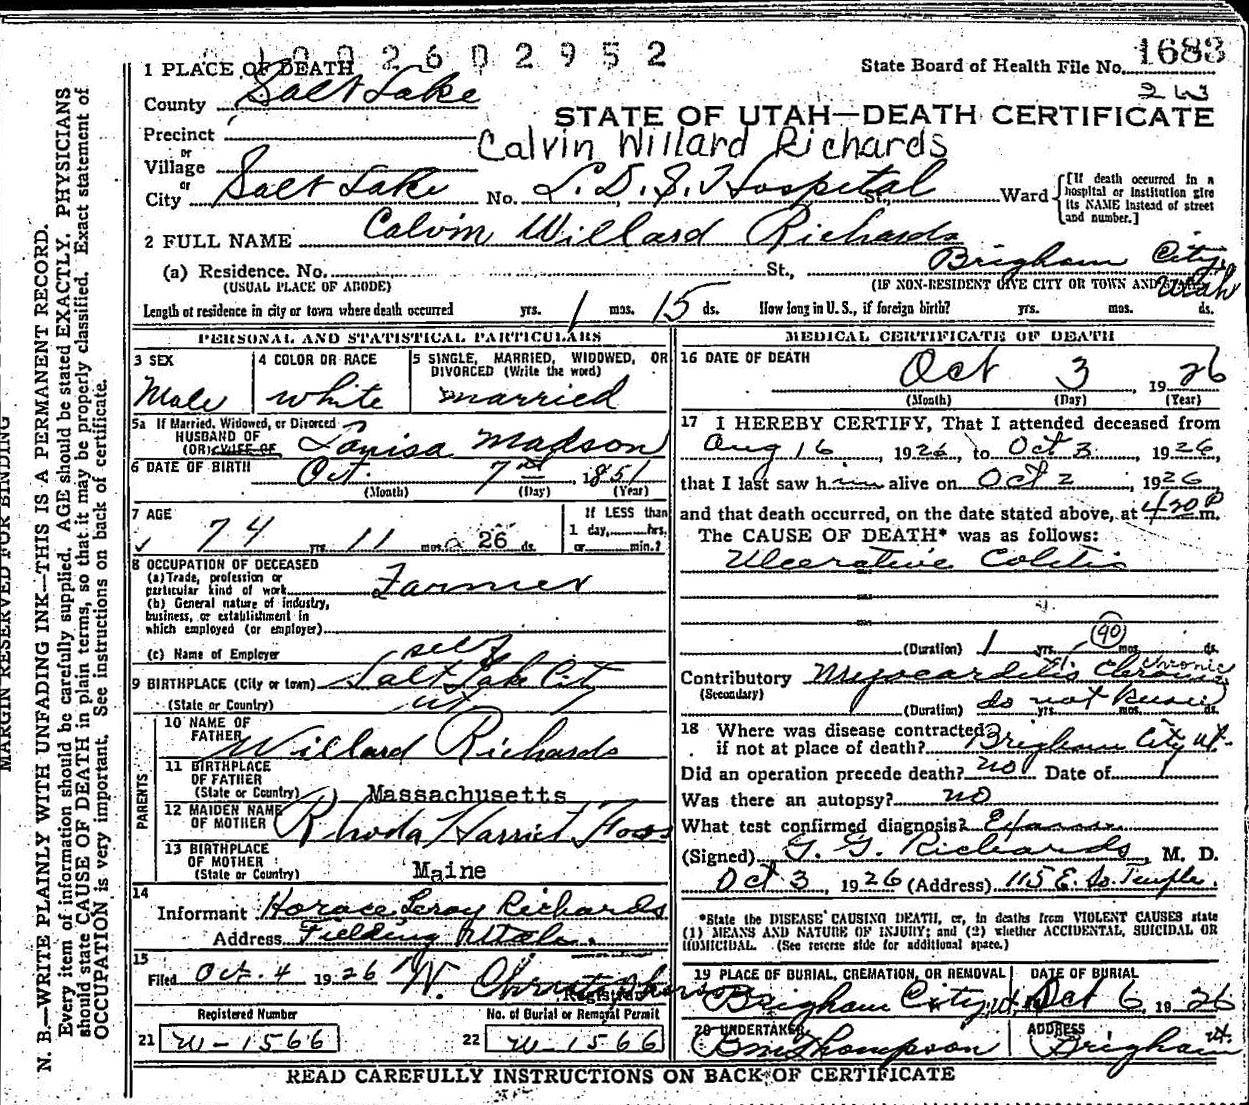 1002602952
1683
1 PLACE OF DEATH
State Board of Health File No.
County Salt Lake
STATE OF UTAH—DEATH CERTIFICATE
Precinct
Calvin Willard Richards
or
Village
or
City Salt Lake No. L.D.S. Hospital St., Ward [If death occurred in a hospital or institution give its NAME instead of street and number.]
2 FULL NAME Calvin Willard Richards
(a) Residence. No. St., Brigham City, Utah
(USUAL PLACE OF ABODE) (IF NON-RESIDENT GIVE CITY OR TOWN AND
Length of residence in city or town where death occurred yrs. 1 mos. 15 ds. How long in U. S., if foreign birth? yrs. mos. ds.
PERSONAL AND STATISTICAL PARTICULARS
3 SEX 4 COLOR OR RACE 5 SINGLE, MARRIED, WIDOWED, OR DIVORCED (Write the word)
Male white married
5a If Married, Widowed, or Divorced
HUSBAND OF
(OR) WIFE OF Louisa Madson
6 DATE OF BIRTH Oct. 7 1851
(Month) (Day) (Year)
7 AGE 74 yrs. 11 mos. 26 ds.
If LESS than
1 day, hrs.
or min.?
8 OCCUPATION OF DECEASED
(a) Trade, profession or
particular kind of work Farmer
(b) General nature of industry,
business, or establishment in
which employed (or employer)
(c) Name of Employer self
9 BIRTHPLACE (City or town) Salt Lake City
(State or Country) Ut
PARENTS
10 NAME OF
FATHER Willard Richards
11 BIRTHPLACE
OF FATHER
(State or Country) Massachusetts
12 MAIDEN NAME
OF MOTHER Rhoda Harriet Foss
13 BIRTHPLACE
OF MOTHER
(State or Country) Maine
14
Informant Horace Leroy Richards
Address Fielding Utah.
15
Filed Oct. 4 1926 W. Christopherson
Registrar
Registered Number No. of Burial or Removal Permit
21 W-1566 22 W-1566
MEDICAL CERTIFICATE OF DEATH
16 DATE OF DEATH
Oct 3, 1926
(Month) (Day) (Year)
17 I HEREBY CERTIFY, That I attended deceased from
Aug 16, 1926, to Oct 3, 1926,
that I last saw him alive on Oct 2, 1926
and that death occurred, on the date stated above, at 420 P m.
The CAUSE OF DEATH* was as follows:
Ulcerative Colitis
(90)
(Duration) 1 yrs. mos. ds.
Contributory Myocarditis Chronic
(Secondary)
(Duration) do not know yrs. mos. ds.
18 Where was disease contracted
if not at place of death? Brigham City Ut.
Did an operation precede death? no Date of
Was there an autopsy? no
What test confirmed diagnosis?
(Signed) G. G. Richards, M. D.
Oct 3, 1926 (Address) 115 E. So. Temple.
*State the DISEASE CAUSING DEATH, or, in deaths from VIOLENT CAUSES state
(1) MEANS AND NATURE OF INJURY; and (2) whether ACCIDENTAL, SUICIDAL OR
HOMICIDAL. (See reverse side for additional space.)
19 PLACE OF BURIAL, CREMATION, OR REMOVAL DATE OF BURIAL
Brigham City, Ut. Oct 6, 1926
20 UNDERTAKER ADDRESS
Thompson Brigham Ut.
READ CAREFULLY INSTRUCTIONS ON BACK OF CERTIFICATE
MARGIN RESERVED FOR BINDING
N. B.—WRITE PLAINLY WITH UNFADING INK—THIS IS A PERMANENT RECORD.
Every item of information should be carefully supplied. AGE should be stated EXACTLY. PHYSICIANS
should state CAUSE OF DEATH in plain terms, so that it may be properly classified. Exact statement of
OCCUPATION is very important. See instructions on back of certificate.